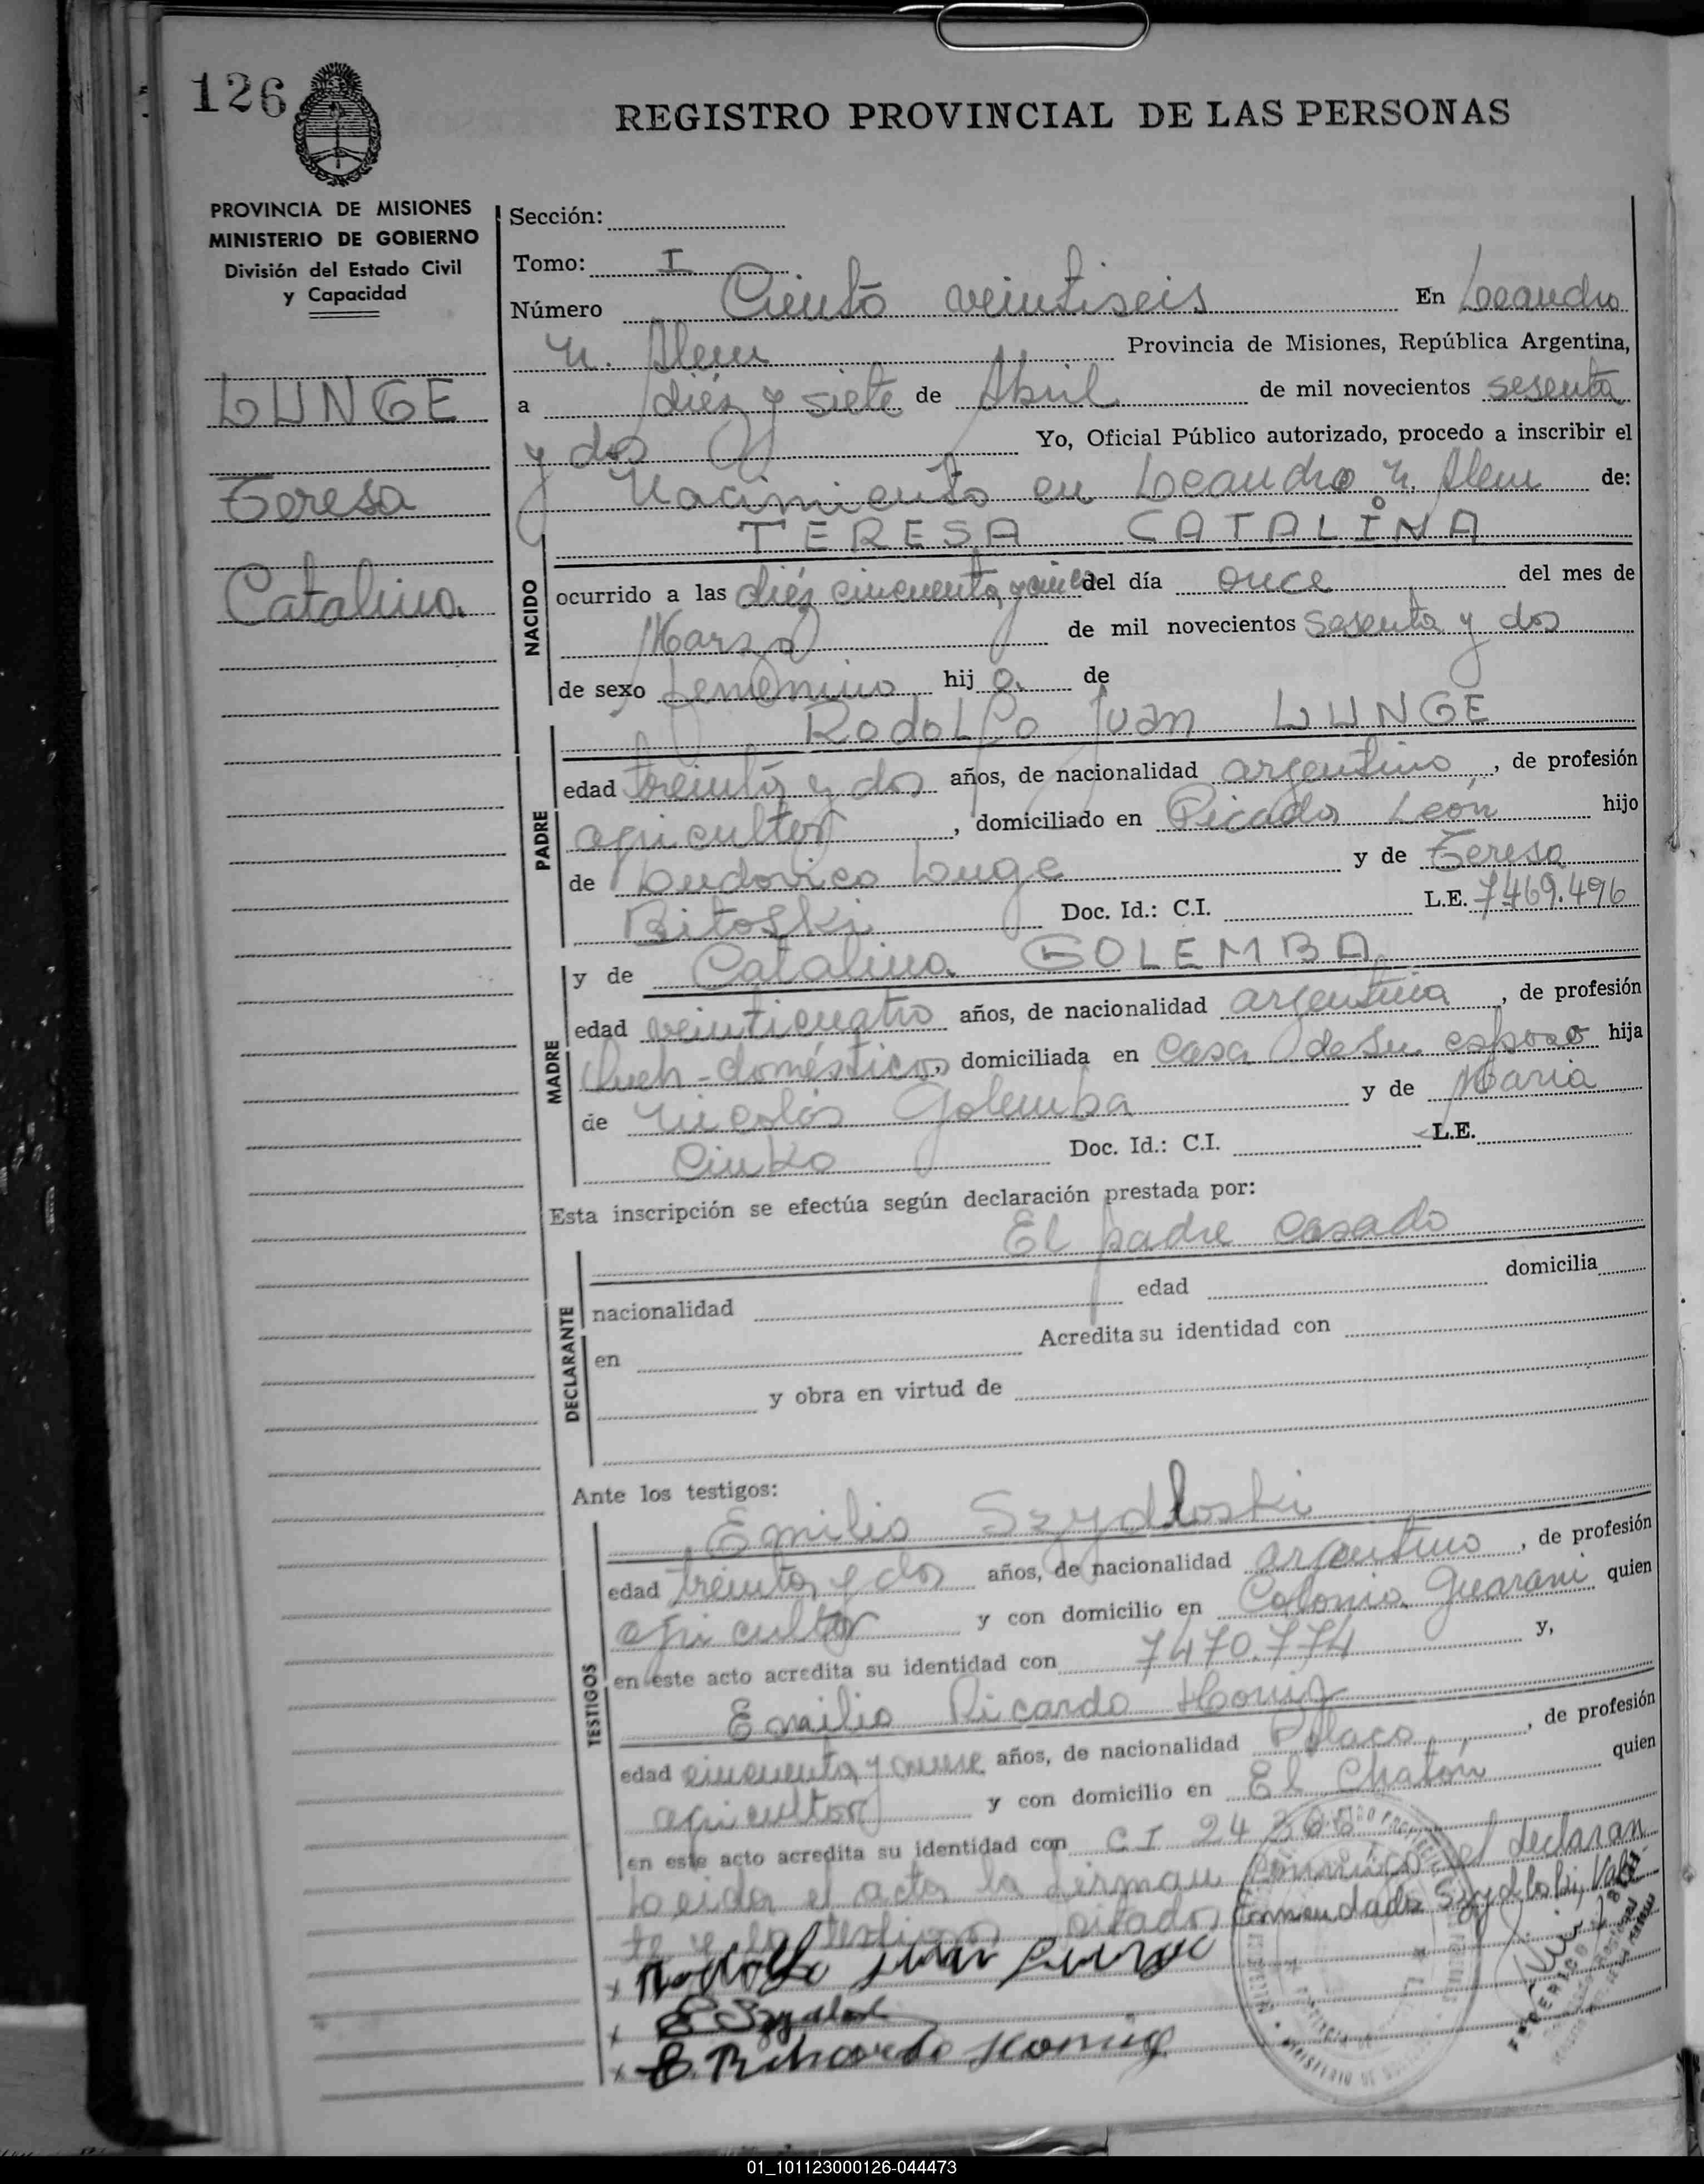 126
REGISTRO PROVINCIAL DE LAS PERSONAS
PROVINCIA DE MISIONES
MINISTERIO DE GOBIERNO
División del Estado Civil
y Capacidad
LUNGE
Teresa
Catalina
Sección:
Tomo: I
Número Ciento veintiseis En Leandro
N. Alem Provincia de Misiones, República Argentina,
a diéz y siete de Abril de mil novecientos sesenta
y dos Yo, Oficial Público autorizado, procedo a inscribir el
Nacimiento en Leandro N. Alem de:
TERESA CATALINA
NACIDO
ocurrido a las diéz cincuenta y del día once del mes de
Marzo de mil novecientos sesenta y dos
de sexo femenino hij a de
Rodolfo Juan LUNGE
PADRE
edad treinta y dos años, de nacionalidad argentino, de profesión
agricultor, domiciliado en Picada León hijo
de Ludovico Lunge y de Teresa
Bitoski Doc. Id.: C.I. L.E. 7469.496
MADRE
y de Catalina GOLEMBA
edad veinticuatro años, de nacionalidad argentina, de profesión
Queh-domésticos, domiciliada en casa de su esposo hija
de Nicolás Golemba y de Maria
Cinko Doc. Id.: C.I. L.E.
Esta inscripción se efectúa según declaración prestada por:
El padre casado
DECLARANTE
nacionalidad edad domicilia
en Acredita su identidad con
y obra en virtud de
Ante los testigos:
Emilio Szydloski
TESTIGOS
edad treinta y dos años, de nacionalidad argentino, de profesión
agricultor y con domicilio en Colonia Guarani quien
en este acto acredita su identidad con 7470.774 y,
Emilio Ricardo Honig
edad cincuenta y nueve años, de nacionalidad Polaco, de profesión
agricultor y con domicilio en El Chatón quien
en este acto acredita su identidad con C I 24
Leida el acta la firman conmigo el declaran
te y los testigos citados Enmendado Szydloski, Vale
x Rodolfo Juan Lunge
x E Szydlos
x E. Richardo Honig
01_101123000126-044473